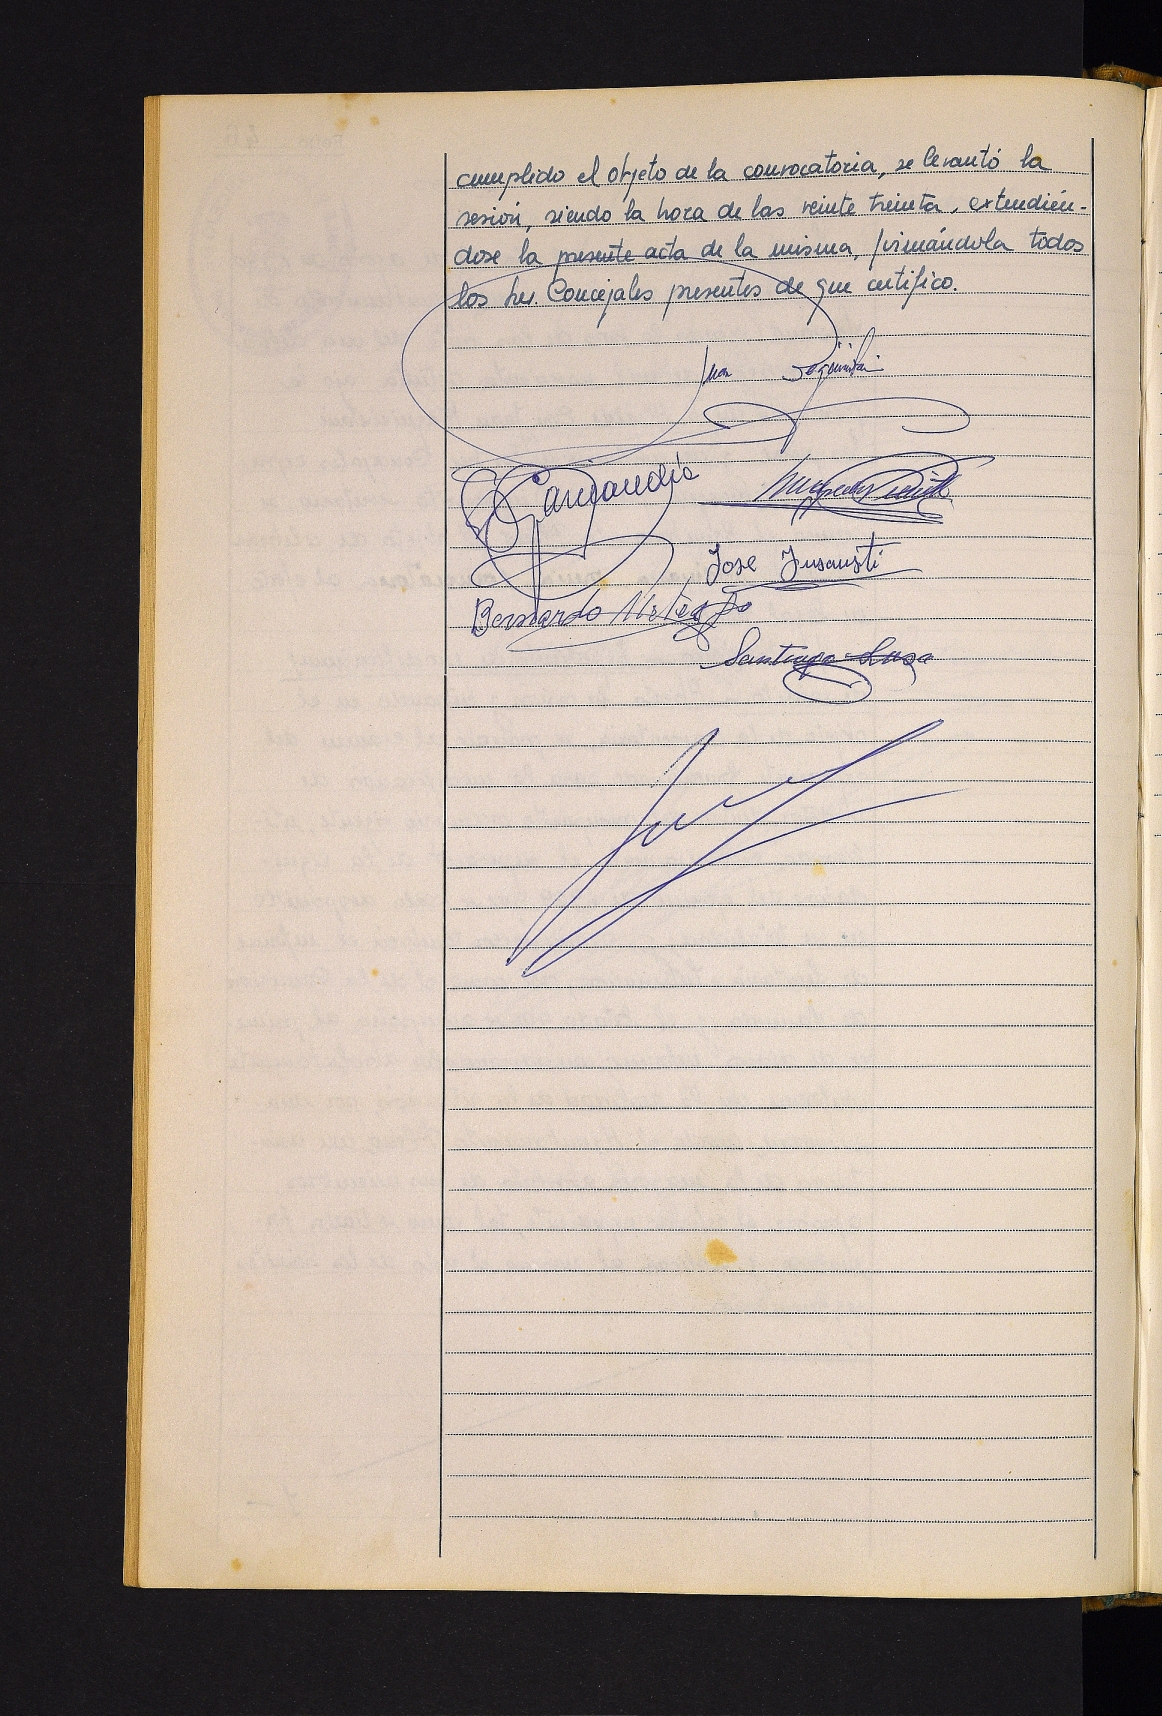 cumplido el objeto de la convocatoria, se levantó la
sesión, siendo la hora de las veinte treinta, extendién-
dose la presente acta de la misma, firmándola todos
los Sres. Concejales presentes de que certifico.
Juan
Garganudia
Jose Insausti
Bernardo
Santiago Lasa